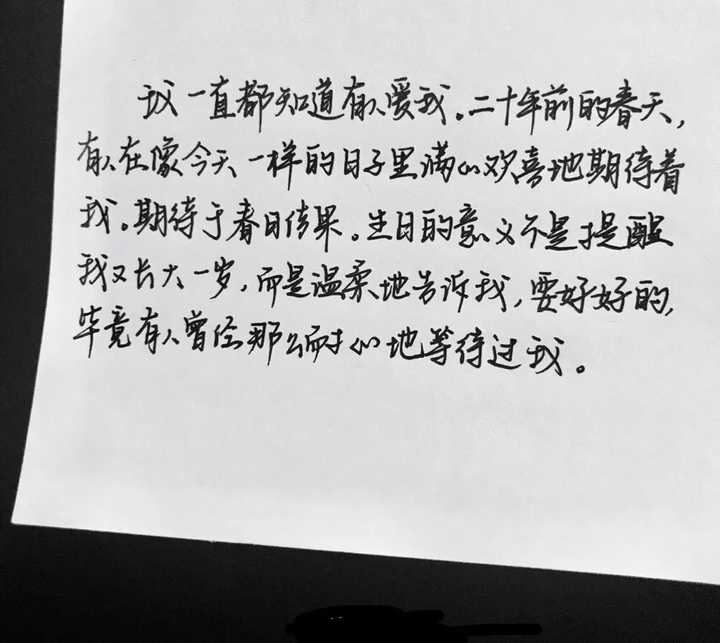 我一直都知道有人爱我。二十年前的春天，
有人在像今天一样的日子里满心欢喜地期待着
我。期待于春日结果。生日的意义不是提醒
我又长大一岁，而是温柔地告诉我，要好好的，
毕竟有人曾经那么耐心地等待过我。